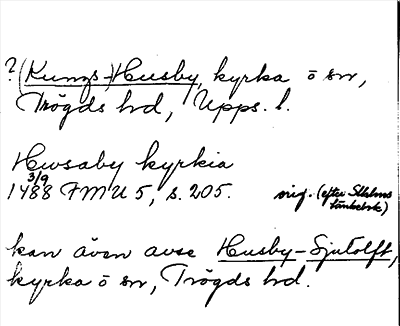 ? (Kungs-)Husby, kyrka o sn,
Trögds hd, Upps. l.
Husaby kyrkia
3/9
1488 FMU 5, s. 205. orig. (efter Sthlms
tänkebok)
kan även avse Husby-Sjutolft,
kyrka o sn, Trögds hd.